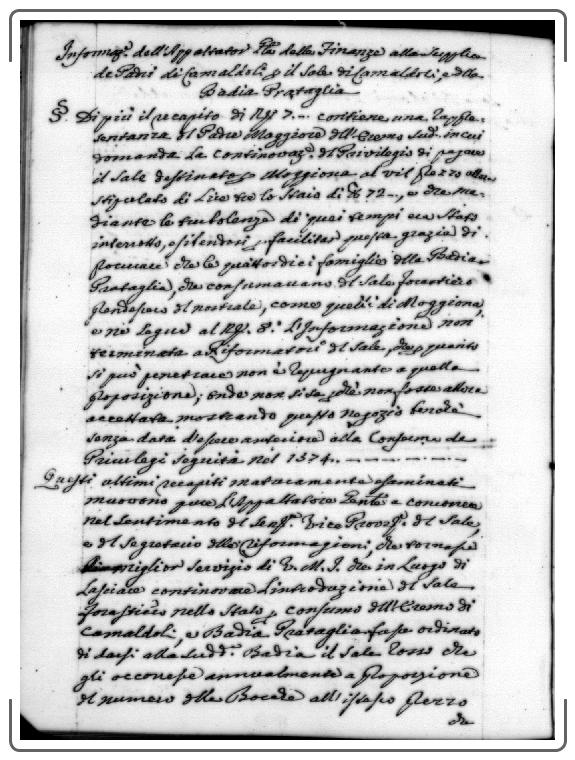 Informaz.e dell'Appaltator Gñle delle Finanze alla Supplica
de Padri di Camaldoli p il Sale di Camaldoli, e della
Badia Prataglia
§. Di più il recapito di N.° 7.-- contiene una Rappre-
sentanza del Padre Maggiore dell'Eremo Sud.° in cui
domanda la continovaz.e del Privilegio di pagare
il Sale destinato p Moggiona al vil prezzo
stipulato di Lire tre lo Staio di 72--, e che me-
diante le turbolenze di quei tempi era stato
interrotto, esibendosi p facilitar questa grazia di
procurare che le quattordici famiglie della Badia
Prataglia, che consumavano del Sale forestiero
prendessero del nostrale, come quelli di Moggiona,
e ne segue al N.° 8.° l'Informazione non
terminata a Riformatori del Sale, che p quanto
si può penetrare non è repugnante a quella
proposizione; onde non si sa p che non fosse allora
accettata mostrando questo negozio benchè
senza data d'essere anteriore alla Conferma de
Privilegi seguita nel 1574..
Questi ultimi recapiti maturamente esaminati
muovono pure l'Appaltatore Gñle a concorrer
nel sentimento del Vice Provv.re del Sale,
e del Segretario delle Riformagioni, che tornasse
miglior servizio di V. M. I. che in luogo di
lasciare continovare l'introduzione del Sale
forestiero nello Stato p consumo dell'Eremo di
Camaldoli, e Badia Prataglia fusse ordinato
di darsi alla Sudd.a Badia il Sale che
gli occorresse annualmente a proporzione
del numero delle Bocche all'istesso prezzo
che